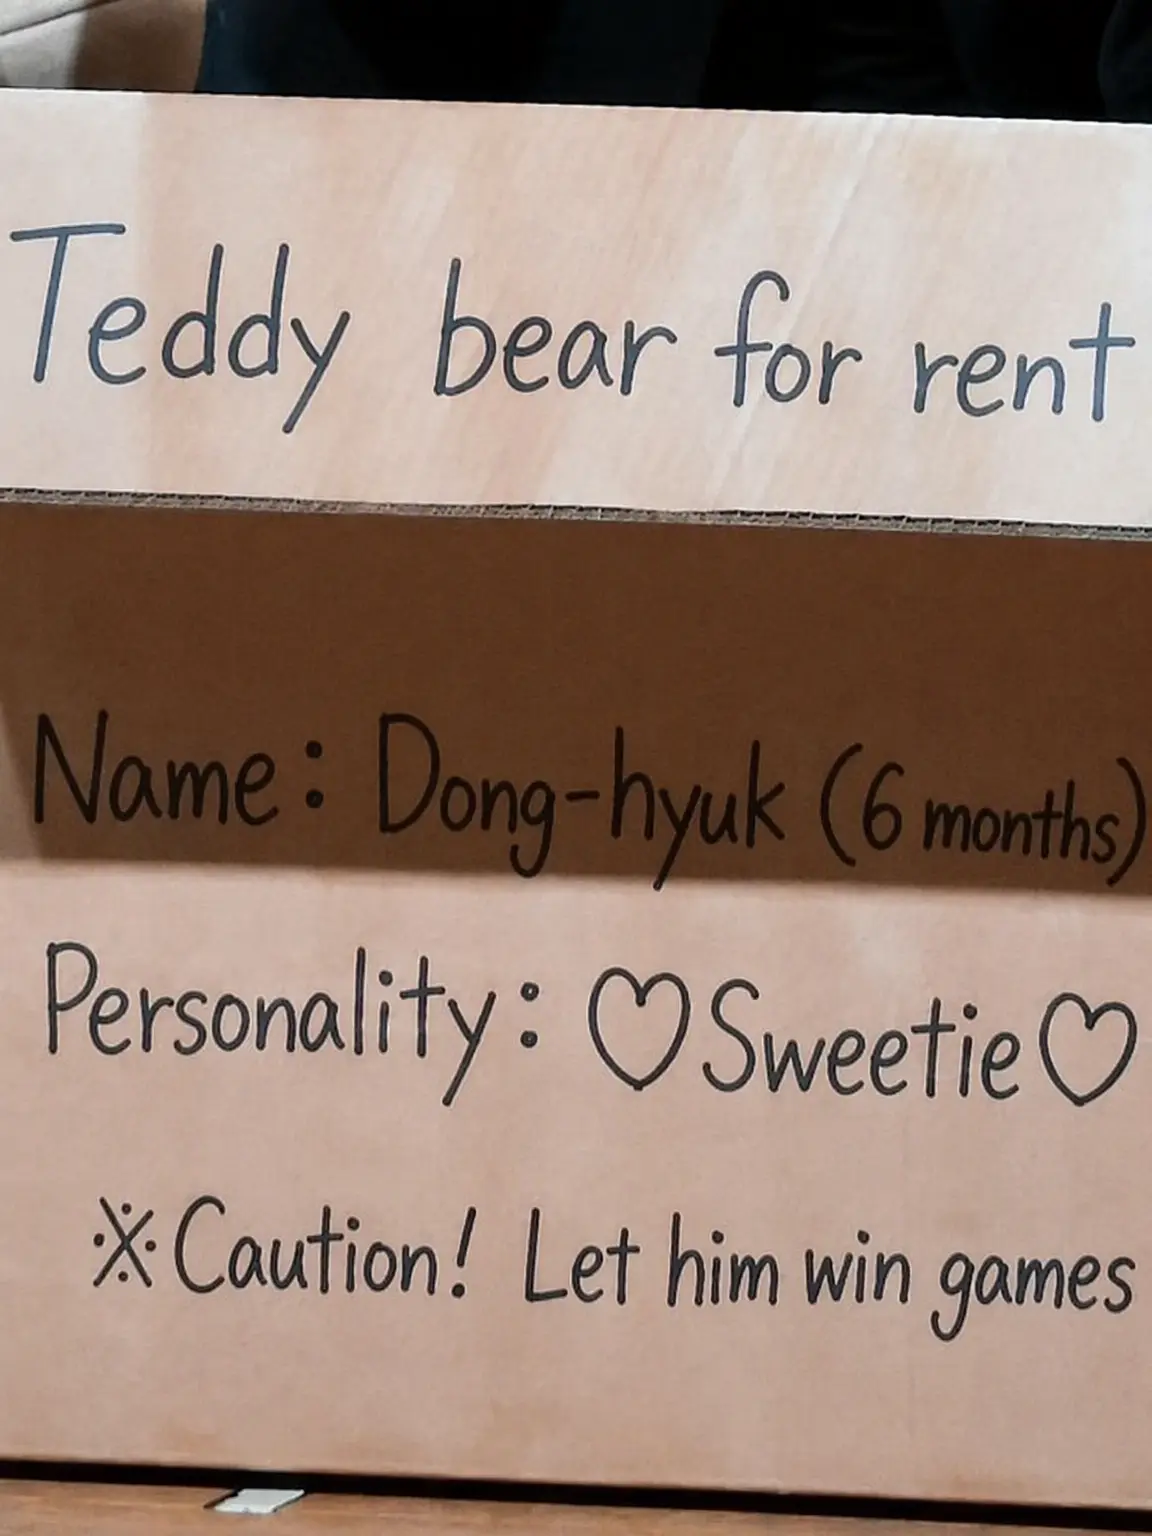 Teddy bear for rent
Name: Dong-hyuk (6 months)
Personality: ♡Sweetie♡
※Caution! Let him win games